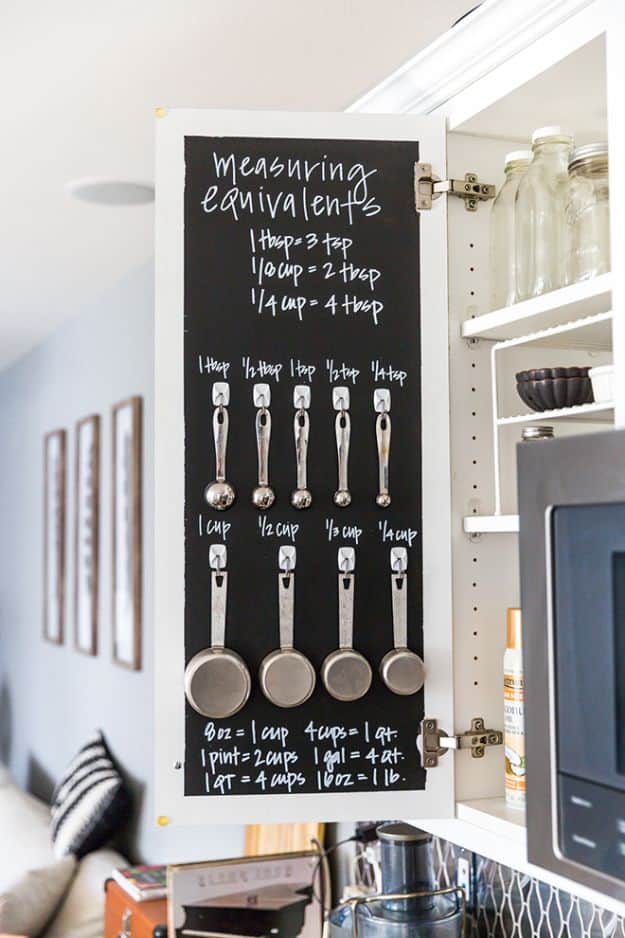 measuring
equivalents
1 tbsp = 3 tsp
1/8 cup = 2 tbsp
1/4 cup = 4 tbsp
1 tbsp 1/2 tbsp 1 tsp 1/2 tsp 1/4 tsp
1 cup 1/2 cup 1/3 cup 1/4 cup
8oz = 1 cup 4 cups = 1 qt.
1 pint = 2 cups 1 gal = 4 qt.
1 qt = 4 cups 16oz = 1 lb.